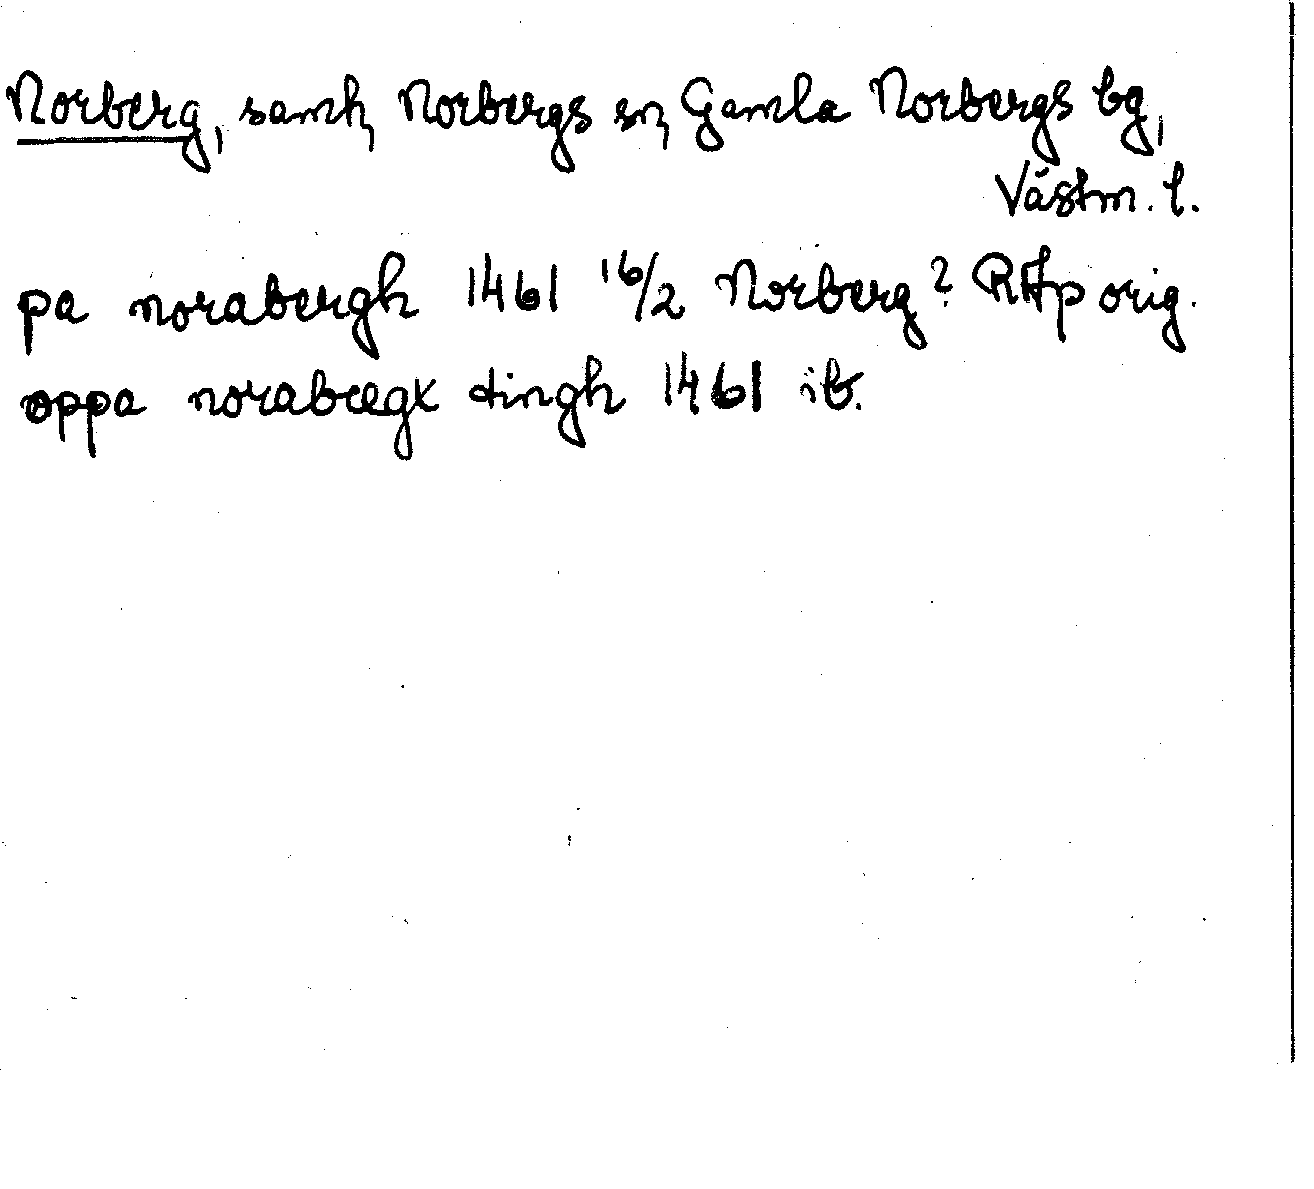 Norberg, samh, Norbergs sn, Gamla Norbergs bg,
Västm. l.
pa norabergh 1461 16/2 Norberg? RAp orig.
oppa norabægx tingh 1461 ib.